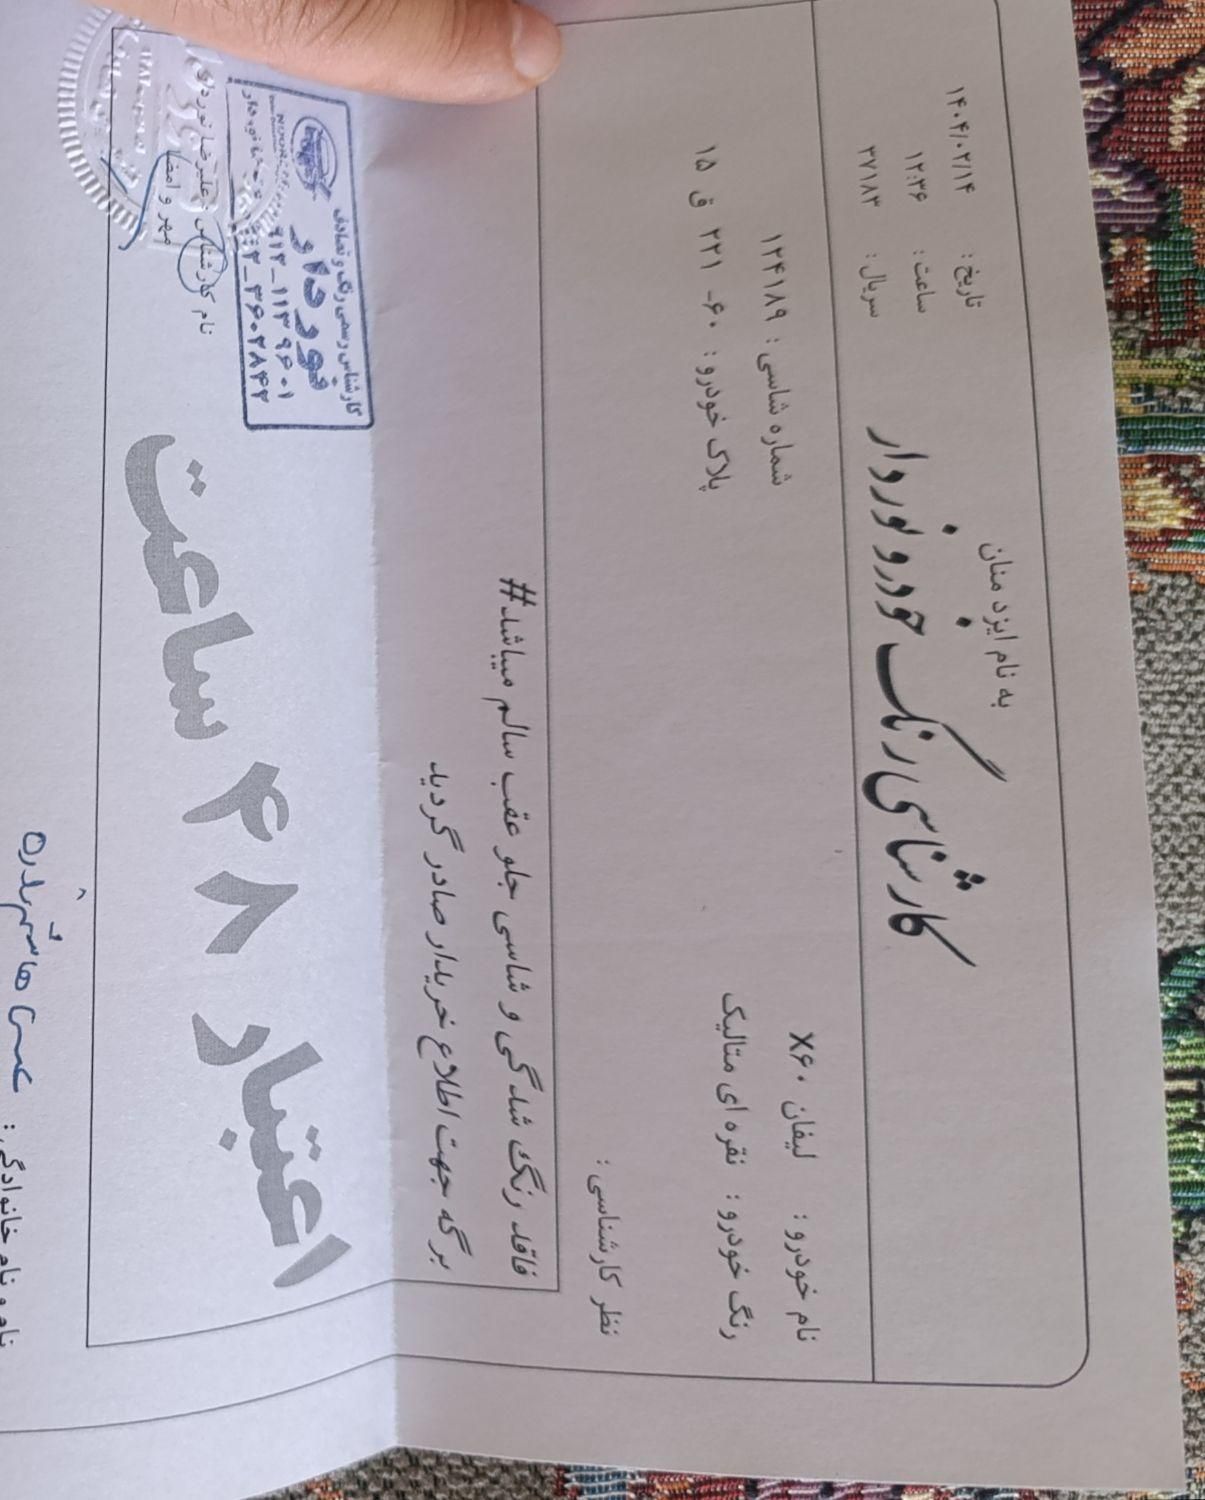 به نام ایزد منان
کارشناسی رنگ خودرو نوردار
تاریخ : ۱۴۰۴/۰۲/۱۴
ساعت : ۱۲:۳۶
سریال : ۳۷۱۸۳
نام خودرو : لیفان X۶۰
شماره شاسی : ۱۲۴۱۸۹
رنگ خودرو : نقره ای متالیک
پلاک خودرو : ۶۰- ۲۲۱ ق ۱۵
نظر کارشناسی :
فاقد رنگ شدگی و شاسی جلو عقب سالم میباشد#
برگه جهت اطلاع خریدار صادر گردید
اعتبار ۴۸ ساعت
کارشناس رسمی رنگ و تصادف
نوردار
نام کارشناس : علیرضا نوردار
مهر و امضا
نام و نام خانوادگی :